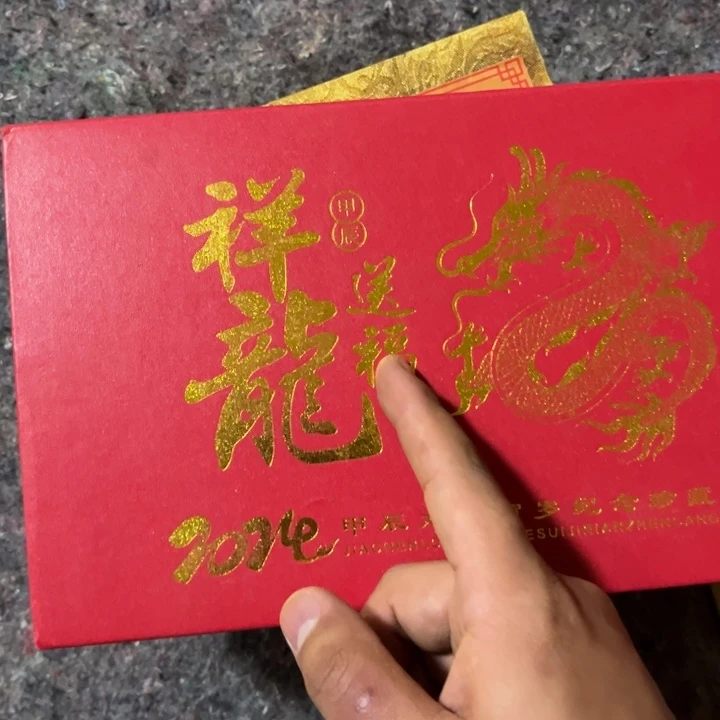 祥龍
甲辰
送福
2024
甲辰 岁纪念珍藏
ESUIJINIANZHENCANG